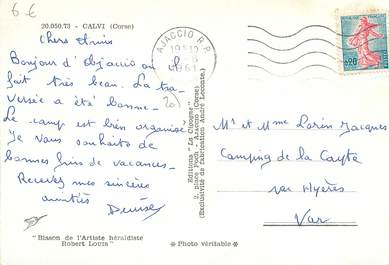 6 €
20.050.73 - CALVI (Corse)
Chers Amis
Bonjour d'Ajaccio où il
fait très beau. La tra-
versée a été bonne-
Le camp est bien organisé
Je vous souhaite de
bonnes fins de vacances-
Recevez mes sincères
amitiés
Denise
"Blason de l'Artiste héraldiste
Robert LOUIS"
* Photo véritable *
Editions "La Cigogne"
2, Place Foch - Ajaccio (Corse)
(Exclusivité de fabrication André Leconte.)
AJACCIO R.P.
1961
0,20
Mr et Mme Lorin Jacques
Camping de la Capte
par Hyères
Var